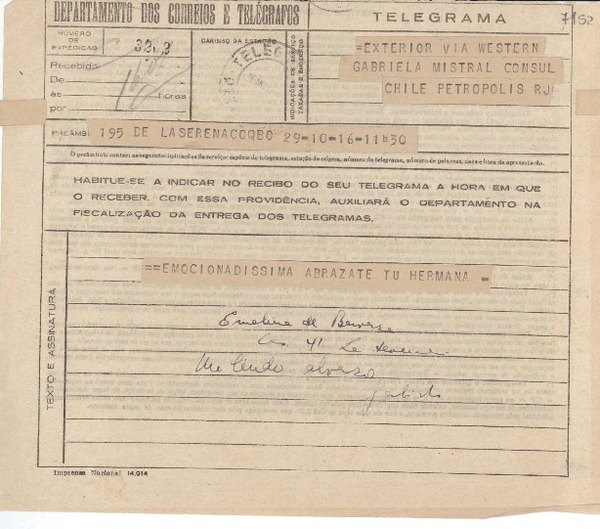 DEPARTAMENTO DOS CORREIOS E TELÉGRAFOS
TELEGRAMA
7152
NÚMERO DE EXPEDIÇÃO
CARIMBO DA ESTAÇÃO
TELEG
INDICAÇÕES DE SERVIÇO TAXADAS E ENDEREÇO
=EXTERIOR VIA WESTERN
GABRIELA MISTRAL CONSUL
CHILE PETROPOLIS RJ
Recebido
De
às horas
por
PREÂMB
195 DE LASERENACOQBO 29-10-16-11h30
O preâmbulo contém as seguintes indicações de serviço: espécie do telegrama, estação de origem, número do telegrama, número de palavras, data e hora da apresentação.
HABITUE-SE A INDICAR NO RECIBO DO SEU TELEGRAMA A HORA EM QUE
O RECEBER. COM ESSA PROVIDÊNCIA, AUXILIARÁ O DEPARTAMENTO NA
FISCALIZAÇÃO DA ENTREGA DOS TELEGRAMAS.
TEXTO E ASSINATURA
==EMOCIONADISSIMA ABRAZATE TU HERMANA =
Emelina de
41 La
Un lindo abrazo
Imprensa Nacional 14.014